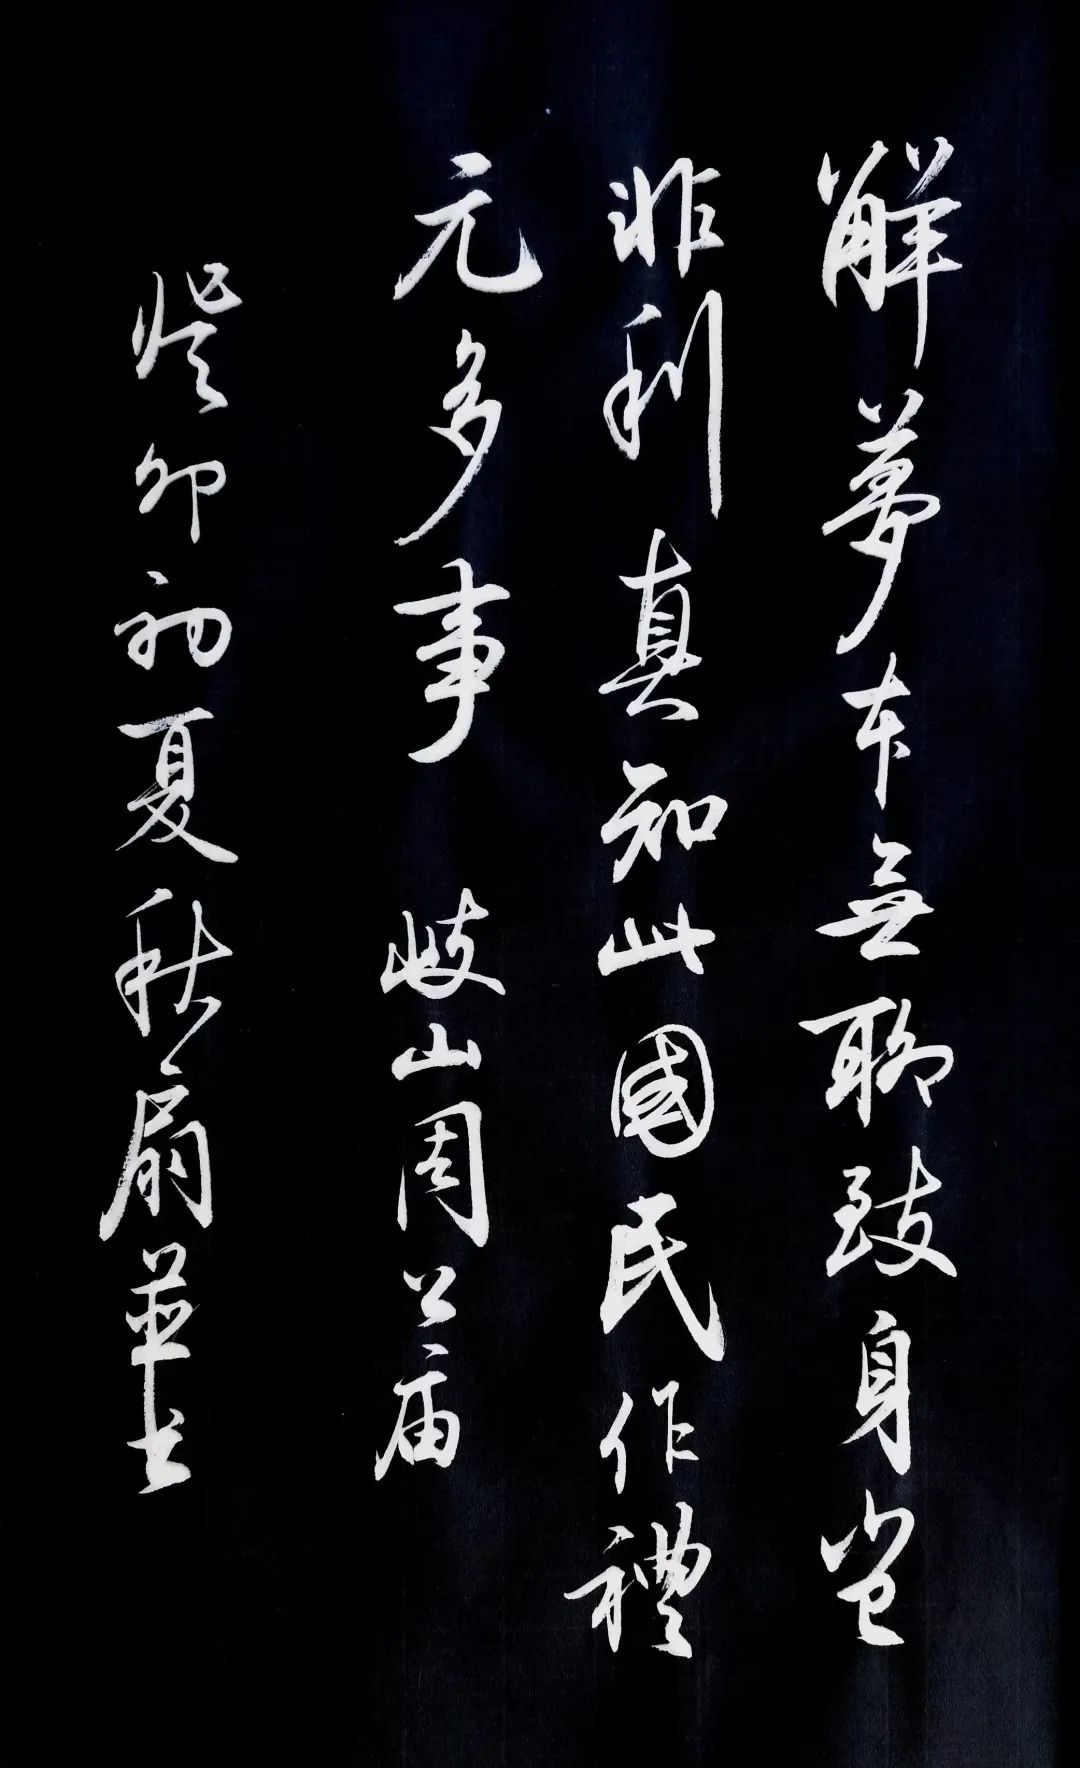 解夢本無聊致身岂
非利真知此國民作禮
元多事 岐山周公庙
癸卯初夏秋扇並书